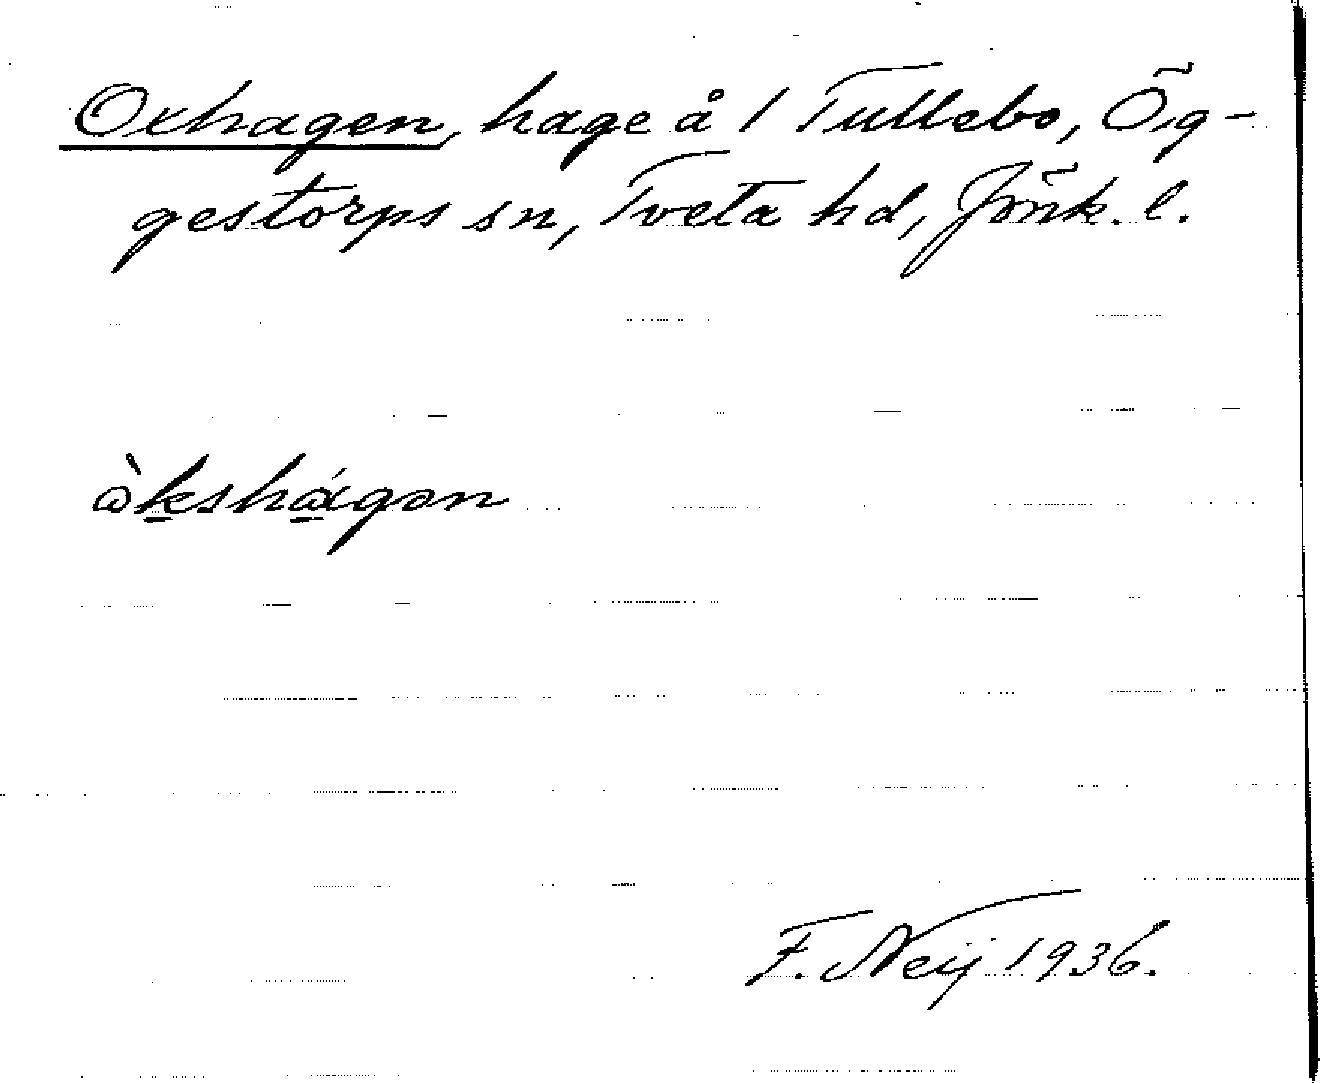 Oxhagen, hage å 1 Tullebo, Ög-
gestorps sn, Tveta hd, Jönk. l.
F. Neij 1936.